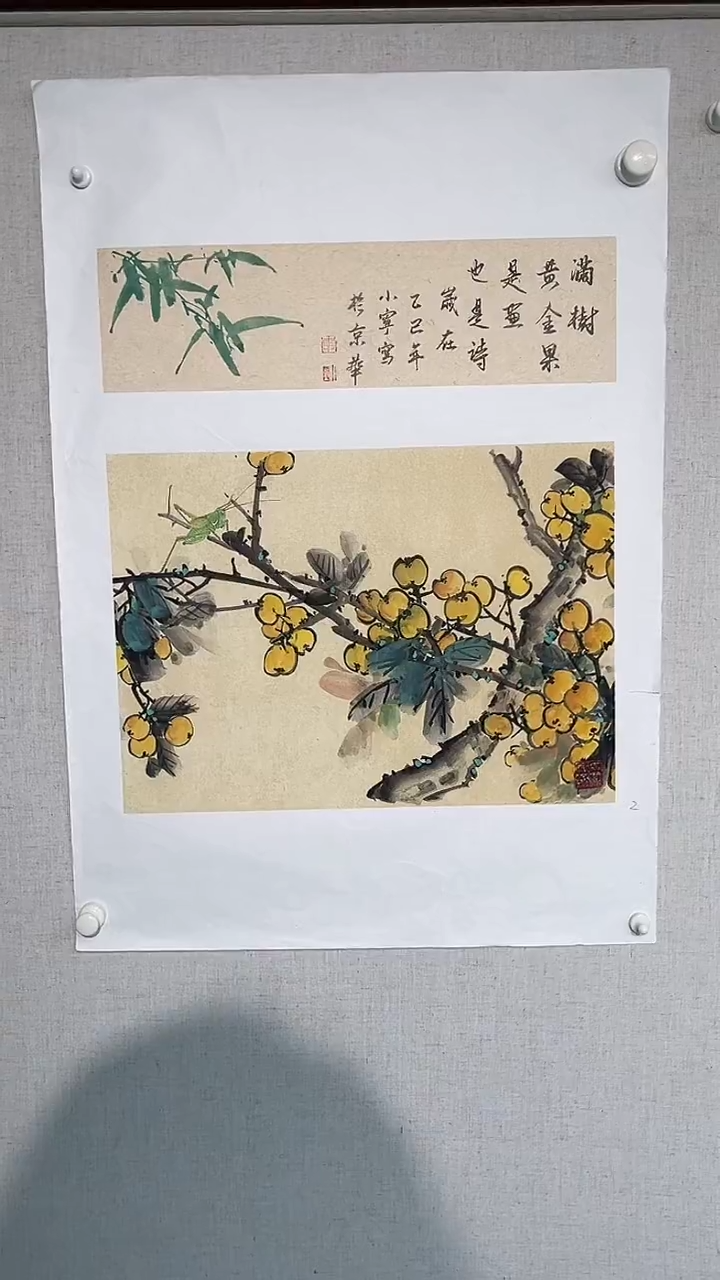 滿樹
黄金果
是畫
也是詩
歲在
乙巳年
小寧寫
於京華
2